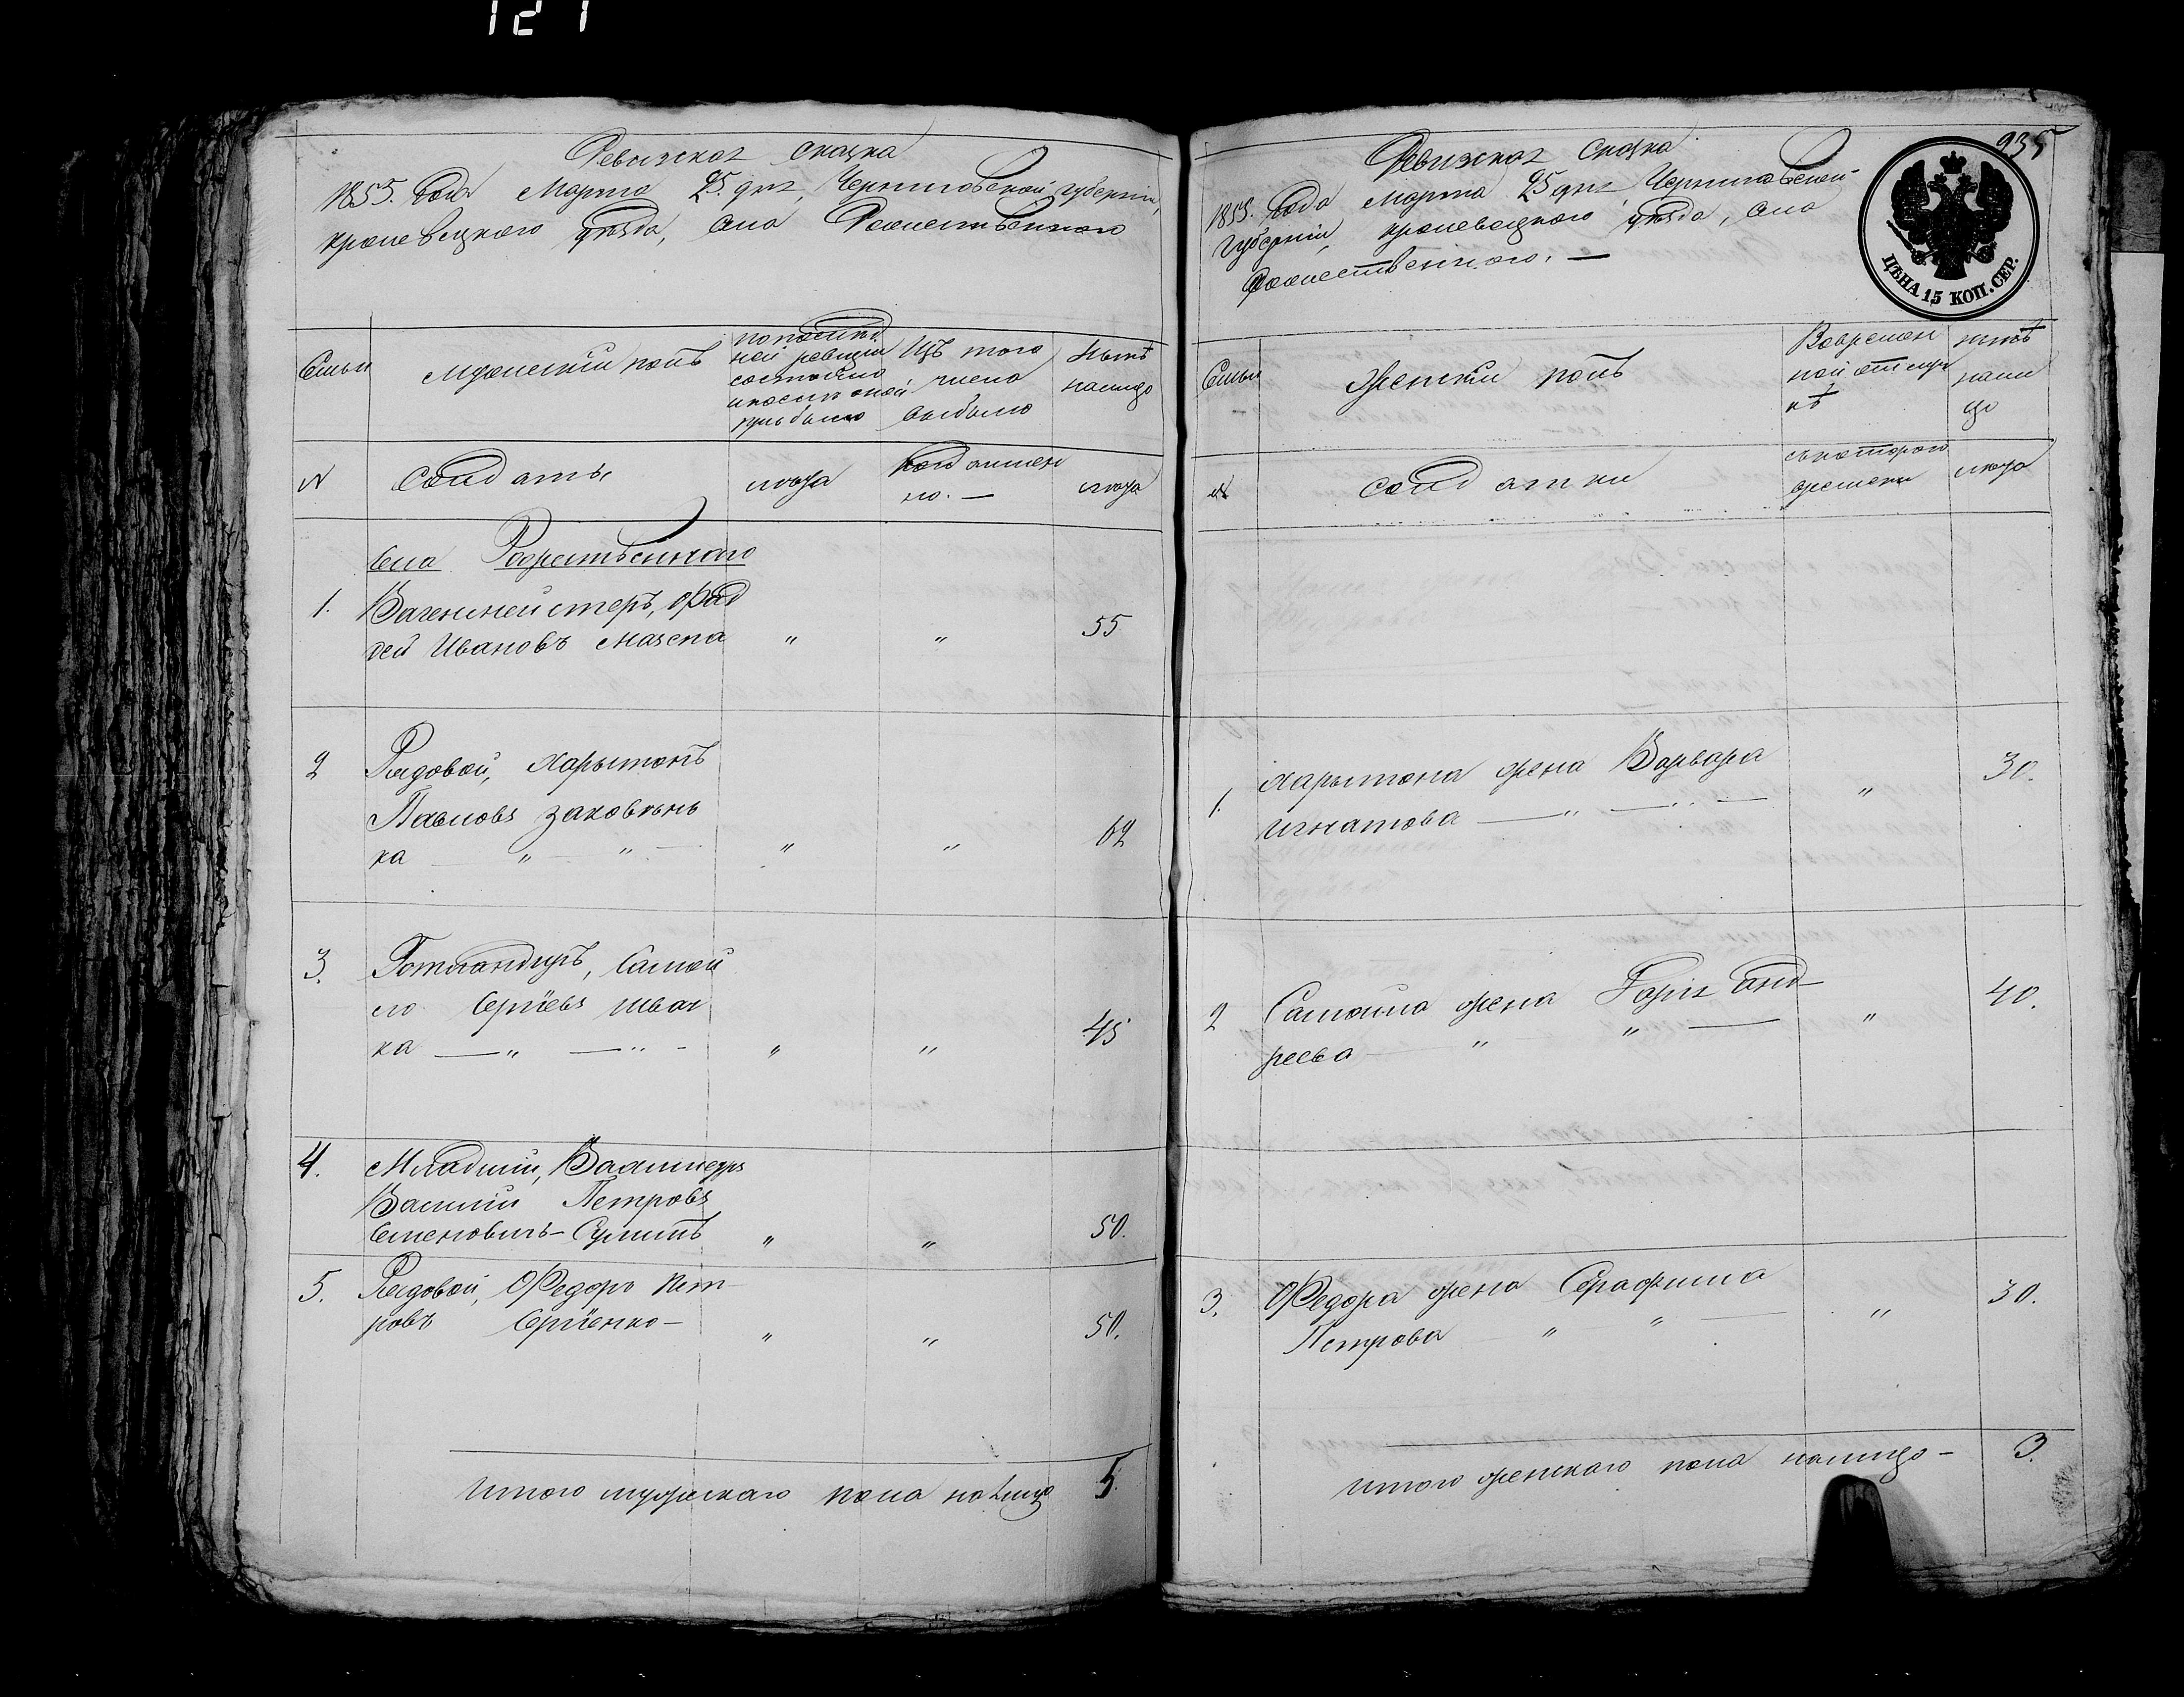 121
Ревизская сказка
1855. Года Марта 25. дня, Черниговской губернии,
кролевецкого уѣзда, села Рожественного
Семьи
мужеский полъ
по послѣд
ней ревизии
состояло
и после оной
прибыло
Изъ того
числа
выбыло
Нынѣ
налицо
N
Солдаты
лѣта
когда именно
но. —
лѣта
Села Рожественного
1.
Вагенмейстеръ, Фад
дей Ивановъ Мазепа
"
"
55
2
Рядовой, Харытонъ
Павловъ
ка — " — " —
"
"
62
3.
Самой
ло Сергѣевъ Швач
ка — " — " —
"
"
45
4.
Младший, Вахмистръ
Василий Петровъ
Семеновичъ-
"
"
50.
5.
Рядовой, Федоръ Пет
ровъ Сергіенко —
"
"
50.
Итого мужескаго пола налицо
5.
935
Ревизская Сказка
1855. Года Марта 25 дня, Черниговской
Губернии, кролевецкого уѣзда, села
Рожественного. —
ЦѢНА 15 КОП. СЕР.
Семьи
женский полъ
Вовремен
ной отлуч
кѣ
нынѣ
нали
цо
N
солдатки
съ которого
времени
лѣта
1.
Харытона жена Варвара
Игнатова — " — " —
"
30.
2
Самойла жена Анд-
реева — " — " —
"
40.
3.
Федора жена Серафима
Петрова — " — " —
"
30.
Итого женскаго пола налицо —
3.